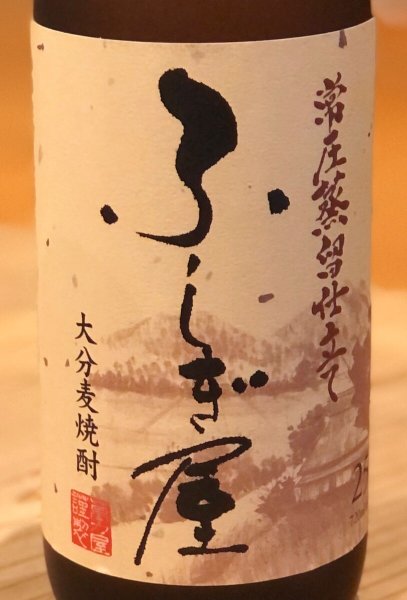 常圧蒸留仕立て
ふしぎ屋
大分麦焼酎